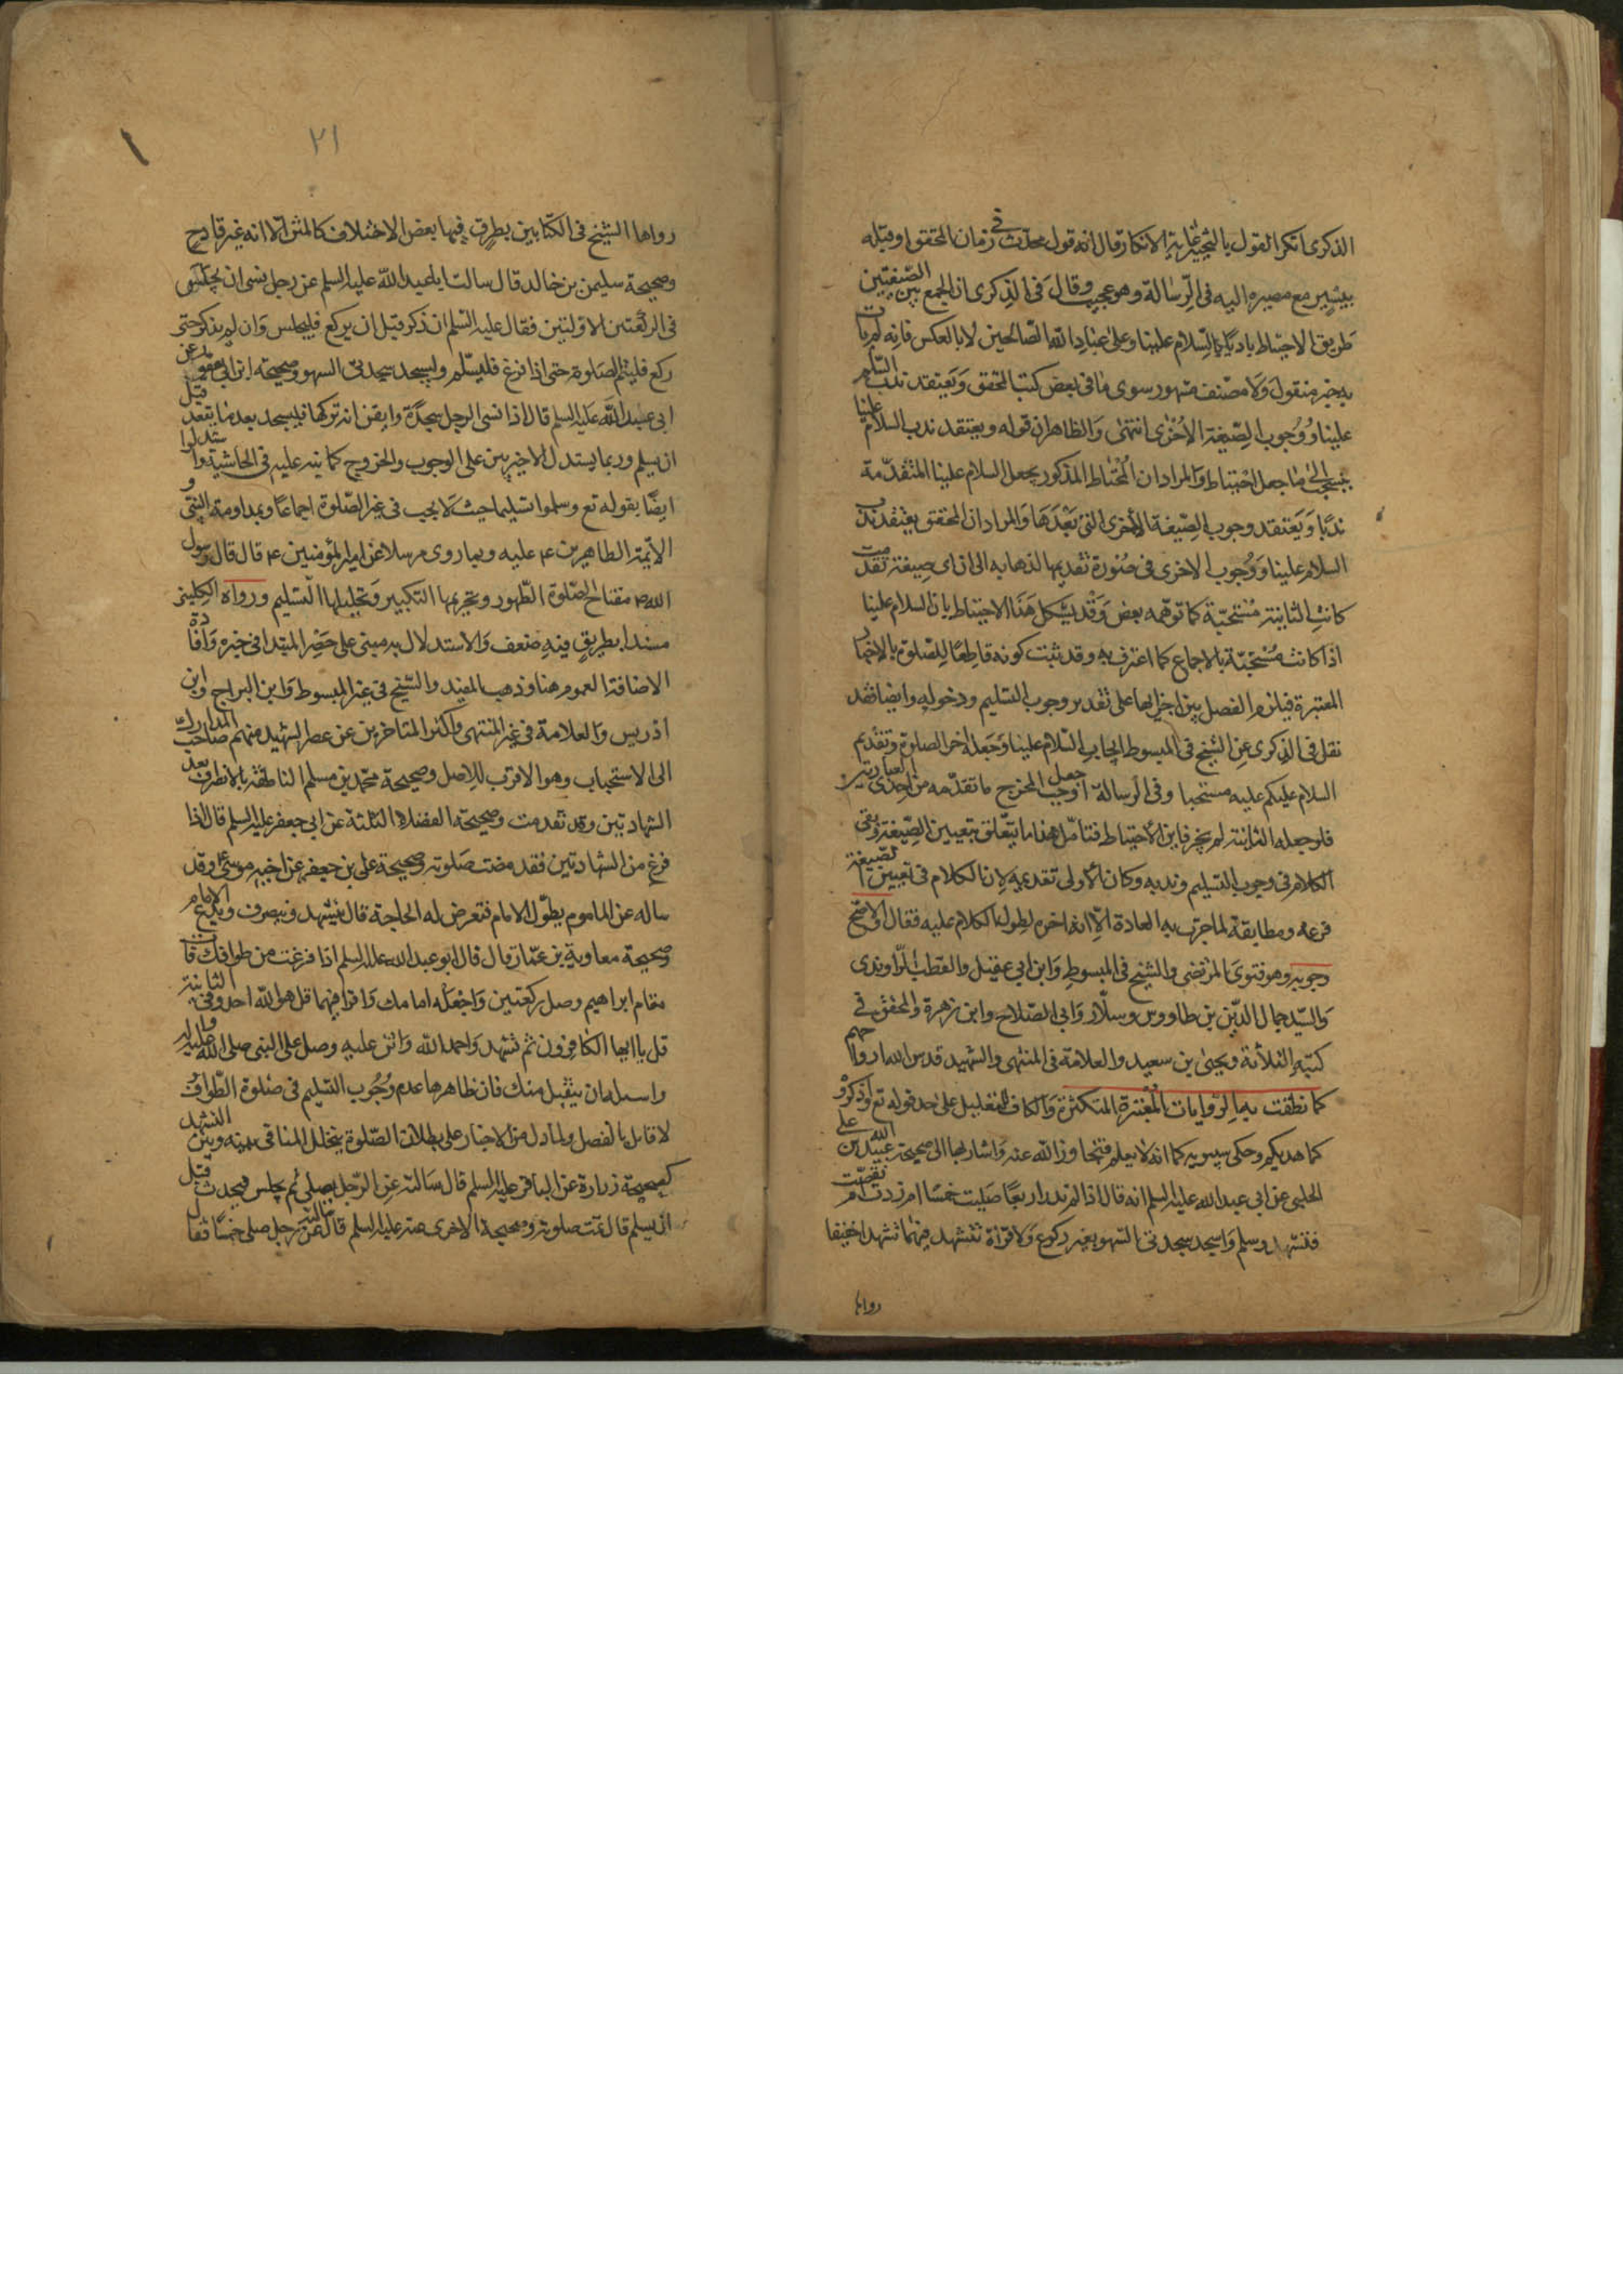 الذكرى انكر القول بالتخيير غاية الانكار قال انه قول محدث في زمان المحقق او قبله
بيسير مع مصيره اليه في الرسالة وهو عجيب وقال في الذكرى ان الجمع بين الصيغتين
طريق الاحتياط باديا بالسلام علينا وعلى عباد الله الصالحين لا بالعكس فانه لم يات
به خبر منقول ولا مصنف مشهور سوى ما في بعض كتب المحقق ويعتقد ندب السلام
علينا ووجوب الصيغة الاخرى انتهى والظاهر ان قوله ويعتقد ندب السلام علينا
ما جعل احتياطا والمراد ان المحتاط المذكور يجعل السلام علينا المتقدمة
ندبا ويعتقد وجوب الصيغة الاخرى التي بعدها والمراد ان المحقق يعتقد ندب
السلام علينا ووجوب الاخرى في صورة تقديمها لذهابه الى ان اي صيغة تقدمت
كانت الثانية مستحبة كما توهمه بعض وقد يشكل هذا الاحتياط بان السلام علينا
اذا كانت مستحبة بالاجماع كما اعترف به وقد ثبت كونه قاطعا للصلوة بالاخبار
المعتبرة فيلزم الفصل بين اجزائها على تقدير وجوب التسليم ودخوله وايضا فقد
نقل في الذكرى عن الشيخ في المبسوط ايجاب السلام علينا وجعله اخر الصلوة وتقديم
السلام عليكم عليه مستحبا وفي الرسالة اوجب جعل المخرج ما تقدمه من احدى العبارتين
فلو جعله الثانية لم يجز فاين الاحتياط فتامل هذا ما يتعلق بتعيين الصيغة وبقي
الكلام في وجوب التسليم وندبه وكان الاولى تقديمه لان الكلام في تعيين الصيغة
فرعه ومطابقة لما جرت به العادة الا انه اخره لطول الكلام عليه فقال والاصح
وجوبه وهو فتوى المرتضى والشيخ في المبسوط وابن ابي عقيل والقطب الراوندي
والسيد جمال الدين بن طاووس وسلار وابي الصلاح وابن زهرة والمحقق في
كتبه الثلاثة ويحيى بن سعيد والعلامة في المنتهى والشهيد قدس الله ارواحهم
كما نطقت به الروايات المعتبرة المتكثرة والكاف للتعليل على حد قوله تع واذكروه
كما هديكم وحكى سيبويه كما انه لا يعلم فتجاوز الله عنه واشار بها الى صحيحة عبيد الله بن على
الحلبي عن ابي عبد الله عليه السلم انه قال اذا لم تدر اربعا صليت خمسا ام زدت ام نقصت
فتشهد وسلم واسجد سجدتي السهو بغير ركوع ولا قراة تتشهد فيهما تشهدا خفيفا
رواها
٢١
رواها الشيخ في الكتابين بطرق فيها بعض الاختلاف كالمتن الا انه غير قادح
وصحيحة سليمن بن خالد قال سالت ابا عبد الله عليه السلم عن رجل نسي ان يجلس
في الركعتين الاولتين فقال عليه السلم ان ذكر قبل ان يركع فليجلس وان لم يذكر حتى
ركع فليتم الصلوة حتى اذا فرغ فليسلم وليسجد سجدتي السهو وصحيحة ابن ابي يعفور عن
ابي عبد الله عليه السلم قال اذا نسي الرجل سجدة وايقن انه تركها فليسجد بعد ما يقعد قبل
ان يسلم وربما يستدل الاخيرين على الوجوب والخروج كما نبه عليه في الحاشية واستدلوا
ايضا بقوله تع وسلموا تسليما حيث لا يجب في غير الصلوة اجماعا وبمداومة النبي و
الائمة الطاهرين ع عليه وبما روى مرسلا عن امير المؤمنين ع قال قال رسول
الله ص مفتاح الصلوة الطهور وتحريمها التكبير وتحليلها التسليم ورواه الكليني
مسندا بطريق فيه ضعف والاستدلال به مبني على حصر المبتدا في خبره وافادة
الاضافة العموم هنا وذهب المفيد والشيخ في غير المبسوط وابن البراج وابن
ادريس والعلامة في غير المنتهى واكثر المتاخرين عن عصر الشهيد منهم صاحب المدارك
الى الاستحباب وهو الاقرب للاصل وصحيحة محمد بن مسلم الناطقة بالانصراف بعد
الشهادتين وقد تقدمت وصحيحة الفضلاء الثلثة عن ابي جعفر عليه السلم قال اذا
فرغ من الشهادتين فقد مضت صلوته وصحيحة على بن جعفر عن اخيه موسى ع وقد
ساله عن الماموم يطول الامام فتعرض له الحاجة قال يتشهد وينصرف ويدع الامام
وصحيحة معاوية بن عمار قال قال ابو عبد الله عليه السلم اذا فرغت من طوافك فات
مقام ابراهيم وصل ركعتين واجعله امامك واقرا فيهما قل هو الله احد وفي الثانية
قل يا ايها الكافرون ثم تشهد واحمد الله واثن عليه وصل على النبي صلى الله عليه واله
واساله ان يتقبل منك فان ظاهرها عدم وجوب التسليم في صلوة الطواف و
لا قائل بالفصل ولما دل من الاخبار على بطلان الصلوة بتخلل المنافي بينه وبين التشهد
كصحيحة زرارة عن الباقر عليه السلم قال سالته عن الرجل يصلي ثم يجلس فيحدث قبل
ان يسلم قال تمت صلوته وصحيحة الاخرى عنه عليه السلم قال سالته عن رجل صلى خمسا فقال